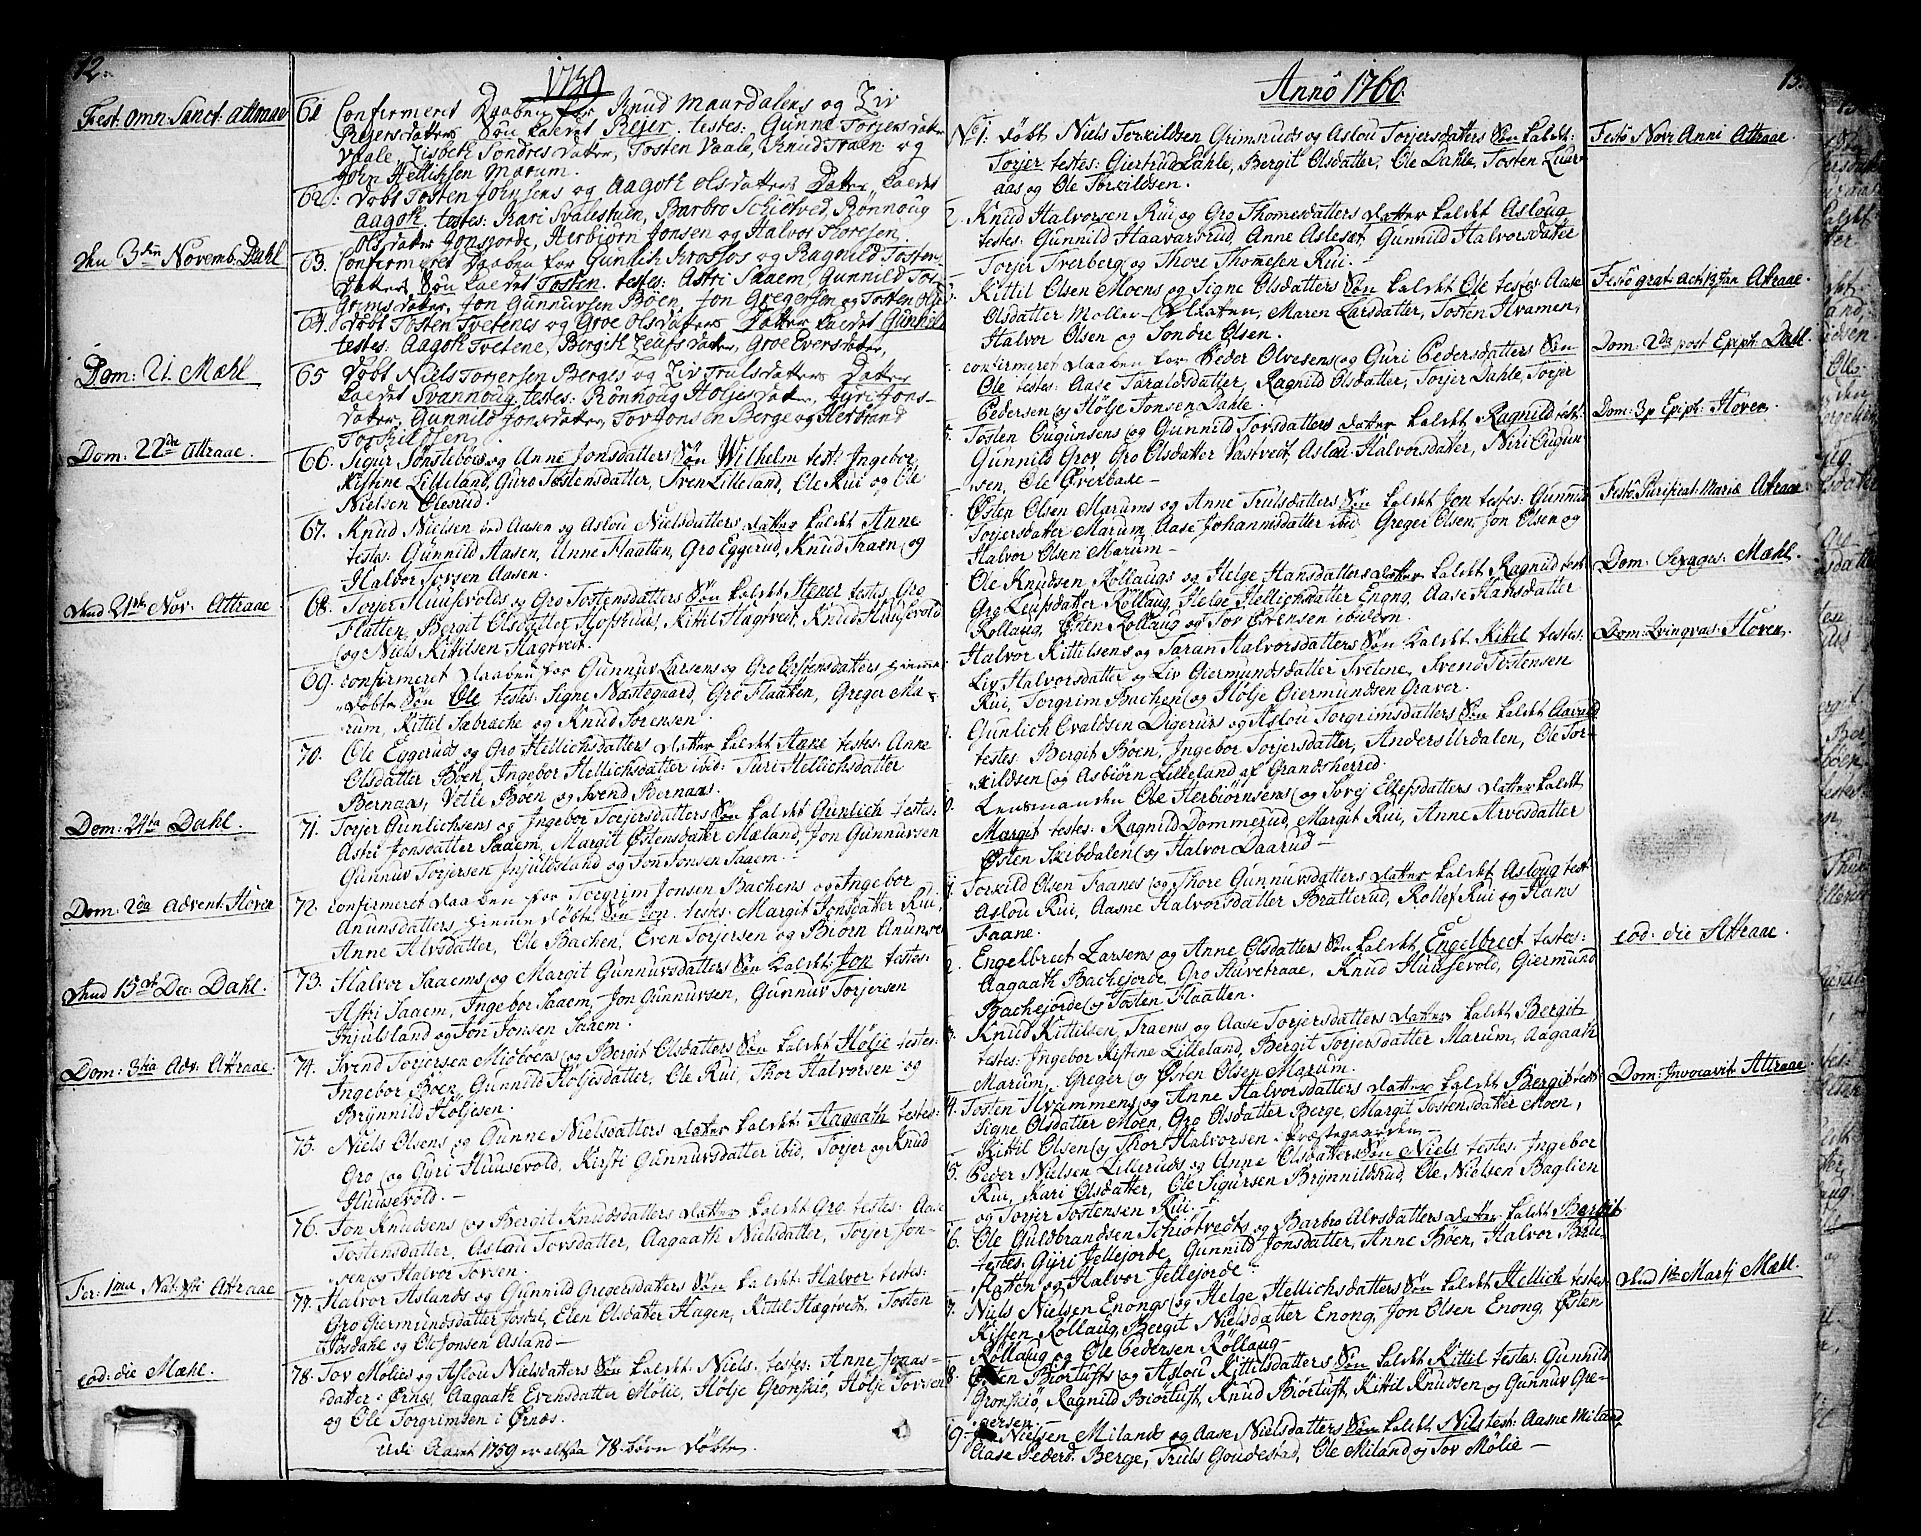 12.
1759
Fest: omn: Sanct: Attraae
61 Confirmeret Daaben for Knud Maurdalens og Liv
Rejersdatters Søn kaldet Rejer. testes: Gunne Torjersdatter
Vaale, Lisbeth Sondresdatter, Tosten Vaale, Knud Traen og
John Hellichsen Marum.
62: Døbt Tosten Johnsens og Aagoth Olsdatters Datter, kaldet
Aagoth, testes: Kari Svalestuen, Barbro Schiotved, Rønnoug
Olsdatter Jonsjorde, Herbiørn Jonsen og Halvor Toresen.
den 3die Novemb: Dahl
63. Confirmeret Daaben for Gunlich Krossos og Ragnild Tosten-
datters Søn kaldet Tosten. testes: Astri Saaem, Gunnild Tor-
grimsdatter, Jon Gunnuvsen Bøen, Jon Gregersen og Tosten
64. Døbt Tosten Tvetenes og Groe Olsdatters Datter kaldet Gunnild
testes: Aagoth Tvetene, Bergith Leufsdatter, Groe Eversdatter,
Dom: 21. Mæhl
65 Døbt Niels Torjersen Berges og Liv Trulsdatters Datter
kaldet Svannoug testes: Rønnoug Holjesdatter, Gyri Jons-
datter, Gunnild Jonsdatter, Tov Jonsen Berge og Herbrand
Torkilsen
Dom: 22de Attraae.
66. Sigur Sønslebøes og Anne Jonsdatters Søn Wilhelm test: Ingebor
Kistine Lilleland, Guro Tostensdatter, Sven Lilleland, Ole Rui og Ole
Nielsen Olesrud.
67. Knud Nielsen ved Aasen og Aslou Nielsdatters datter kaldet Anne
testes: Gunnild Aasen, Anne Flaatten, Gro Eggerud, Knud Traen og
Halvor Torsen Aasen.
dend 21de Nov: Attraae
68. Torjer Huusevolds og Gro Tostensdatters Søn kaldet Stener testes: Gro
Flatten, Bergit Olsdatter Hofskuu, Kittil Hagtvedt, Knud Huusevold
og Niels Kittilsen Hagtvedt.
69. confirmeret daaben for Gunnuv Larsens og Gro Østensdatters hjemme-
døbte Søn Ole testes: Signe Næstegaard, Gro Flaaten, Greger Ma-
rum, Kittil Sæbrache og Knud Sørensen.
70. Ole Eggeruds og Gro Hellichsdatters datter kaldet Anne testes: Anne
Olsdatter Bøen, Ingebor Hellichsdatter ibid: Turi Hellichsdatter
Bernaas, Vetle Bøen og Svend Bernaas.
Dom: 24ta Dahl.
71. Torjer Gunlichsens og Ingebor Torjersdatters Søn kaldet Gunlich testes:
Astri Jonsdatter Saaem, Margit Østensdatter Mæland, Jon Gunnuvsen
Gunnuv Torjersen Injuldseland og Jon Jonsen Saaem.
Dom: 2da Advent: Hoven
72. confirmeret daaben for Torgrim Jonsen Bachens og Ingebor
Anunsdatters hjemmedøbte Søn Jon. testes: Margit Jonsdatter Rui,
Anne Alvsdatter, Ole Bachen, Even Torjersen og Biørn Anunsen
dend 15de Dec: Dahl.
73. Halvor Saaems og Margit Gunnuvsdatters Søn kaldet Jon testes:
Astri Saaem, Ingebor Saaem, Jon Gunnuvsen, Gunnuv Torjersen
Injulsland og Jon Jonsen Saaem.
Dom: 3tia Adv: Attraae.
74. Svend Torjersen Midbøens og Bergit Olsdatters Søn kaldet Hølje testes:
Ingebor Bøen, Gunnild Høljesdatter, Ole Rui, Thor Halvorsen og
Brynnild Høljesen.
75. Niels Olsens og Gunne Nielsdatters datter kaldet Aagaath testes:
Gro og Gyri Huusevold, Kirsti Gunnuvsdatter ibid, Torjer og Knud
Huusevold.—
76. Jon Knudsens og Bergit Knudsdatters datter kaldet Gro testes: Aase
Tostensdatter, Aslau Torsdatter, Aagaath Nielsdatter, Torjer Jon-
sen og Halvor Torsen.
Fer: 1ma Nat: Xsti Attraae
77. Halvor Aslands og Gunnild Gregersdatters Søn kaldet Halvor testes:
Gro Giermundsdatter Josdal, Elen Olsdatter Hagen, Kittil Hægtvedt, Tosten
Jøsdahl og Ole Jonsen Asland—
eod: die Mæhl.
78. Tor Mølies og Aslou Nielsdatters Søn kaldet Niels. testes: Anne Jonas-
datter i Ørnes, Aagaath Evensdatter Mølie, Hølje Gronskiø, Hølje Torsen
og Ole Torgrimsen i Ørnes.
Udi Aaret 1759 er altsaa 78 børn døbte.
13.
Anno 1760.
No 1: døbt Niels Torkildsen Grimsruds og Aslou Torjersdatters Søn kaldet:
Torjer testes: Giertrud Dahle, Bergit Olsdatter, Ole Dahle, Tosten Luur-
aas og Ole Torkildsen.
Festo Novi Anni Attraae.
2. Knud Halvorsen Rui og Gro Thomesdatters datter kaldet Asloug
testes: Gunnild Haavarsrud, Anne Aslesæt, Gunnild Halvorsdatter
Torjer Tverberg og Thore Thomesen Rui.
Festo grat: act: 13 Jan Attraae.
Kittil Olsen Moens og Signe Olsdatters Søn kaldet Ole testes: Aase
Olsdatter Møller, Maren Larsdatter, Tosten Hvamen,
Halvor Olsen og Sondre Olsen.
Dom: 2da post Epiph: Dahl.
confirmeret daaben for Peder Olvesens og Guri Pedersdatters Søn
Ole testes: Aase Taraldsdatter, Ragnild Olsdatter, Torjer Dahle, Torjer
Pedersen og Hølje Jonsen Dahle.
Dom: 3 p Epiph: Hoven.
5. Tosten Ougunsens og Gunnild Torsdatters datter kaldet Ragnild test:
Gunnild Grov, Gro Olsdatter Vastvedt, Aslau Halvorsdatter, Niri Ougun-
sen, Ole Øverbøe—
Festo Purificat: Mariæ Attraae
Østen Olsen Marums og Anne Trulsdatters Søn kaldet Jon testes: Gunnild
Torjersdatter Marum, Aase Johannsdatter ibid, Greger Olsen, Jon Olsen og
Halvor Olsen Marum—
Dom: Sexages: Mæhl.
Ole Knudsen Rollaugs og Helge Hansdatters datter kaldet Ragnild test:
Gro Leufsdatter Rollaug, Helge Hellichsdatter Engng, Aase Hansdatter
Rollaug, Østen Rollaug og Tov Evensen ibidem.
Dom: Qvinqvag: Hoven.
Halvor Kittilsens og Taran Halvorsdatters Søn kaldet Kittil testes:
Liv Halvorsdatter og Liv Giermundsdatter Tvetene, Svend Tostensen
Rui, Torgrim Bachen og Hølje Giermundsen Graver.
Gunlich Evaldsen Digeruds og Aslou Torgrimsdatters Søn kaldet Aavald
testes: Bergit Bøen, Ingebor Torjersdatter, Anders Urdalen, Ole Tor-
kildsen og Asbiørn Lilleland af Grandsherred.
0. Lensmanden Ole Herbiørnsens og Tovej Ellefsdatters datter kaldet
Margit testes: Ragnild Dommerud, Margit Rui, Anne Arvesdatter
Østen Skibdalen og Halvor Daarud—
1. Torkild Olsen Faanes og Thore Gunnuvsdatters datter kaldet Asloug test:
Aslou Rui, Aasne Halvorsdatter Bratterud, Rollef Rui og Hans
Faane.
eod: die Attraae.
2. Engelbrect Larsens og Anne Olsdatters Søn kaldet Engelbrect testes:
Aagaath Bachejorde, Gro Huvetraae, Knud Huusevold, Giermund
Bachejorde og Tosten Flaatten.
3. Knud Kittilsen Traens og Aase Torjersdatters datter kaldet Bergit
testes: Ingebor Kistene Lilleland, Bergit Torjersdatter Marum, Aagaath
Marum, Greger og Østen Olsen Marum.
Dom: Invocavit Attraae.
4. Tosten Hvammens og Anne Halvorsdatters datter kaldet Bergit test:
Signe Olsdatter Moen, Gro Olsdatter Berge, Margit Tostensdatter Moen,
Kittil Olsen og Thor Halvorsen i Præstegaarden—
5. Peder Nielsen Lilleruds og Anne Olsdatters Søn Niels testes: Ingebor
Rui, Kari Olsdatter, Ole Sigursen Brynnildsrud, Ole Nielsen Baglien
og Torjer Tostensen Rui.—
6. Ole Guldbrandsen Schiotvedts og Barbro Alvsdatters datter kaldet Bergit
testes: Gyri Jellejorde, Gunnild Jonsdatter, Anne Bøen, Halvor Bøen
Haaten og Halvor Jellejorde.
dend 1te Martj Mæhl.
7. Niels Nielsen Enongs og Helge Hellichsdatters Søn kaldet Hellich testes
Kisten Rollaug, Bergit Nielsdatter Enong, Jon Olsen Enong, Østen
Rollaug og Ole Pedersen Rollaug—
8. Østen Biørtufts og Aslou Kittilsdatters Søn kaldet Kittil testes: Gunnild
Gronskiø, Ragnild Biørtuft, Knud Biørtuft, Kittil Knudsen og Gunnuv Gre-
gersen.—
9. Nielsen Milands og Aase Nielsdatters Søn kaldet Nils test: Aasne Miland,
Aase Peders: Berge, Truls Goudestad, Ole Miland og Tov Mølie—